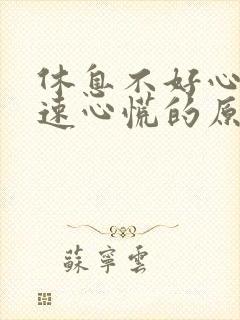 休息不好心
速心慌的原
蘇寧雲